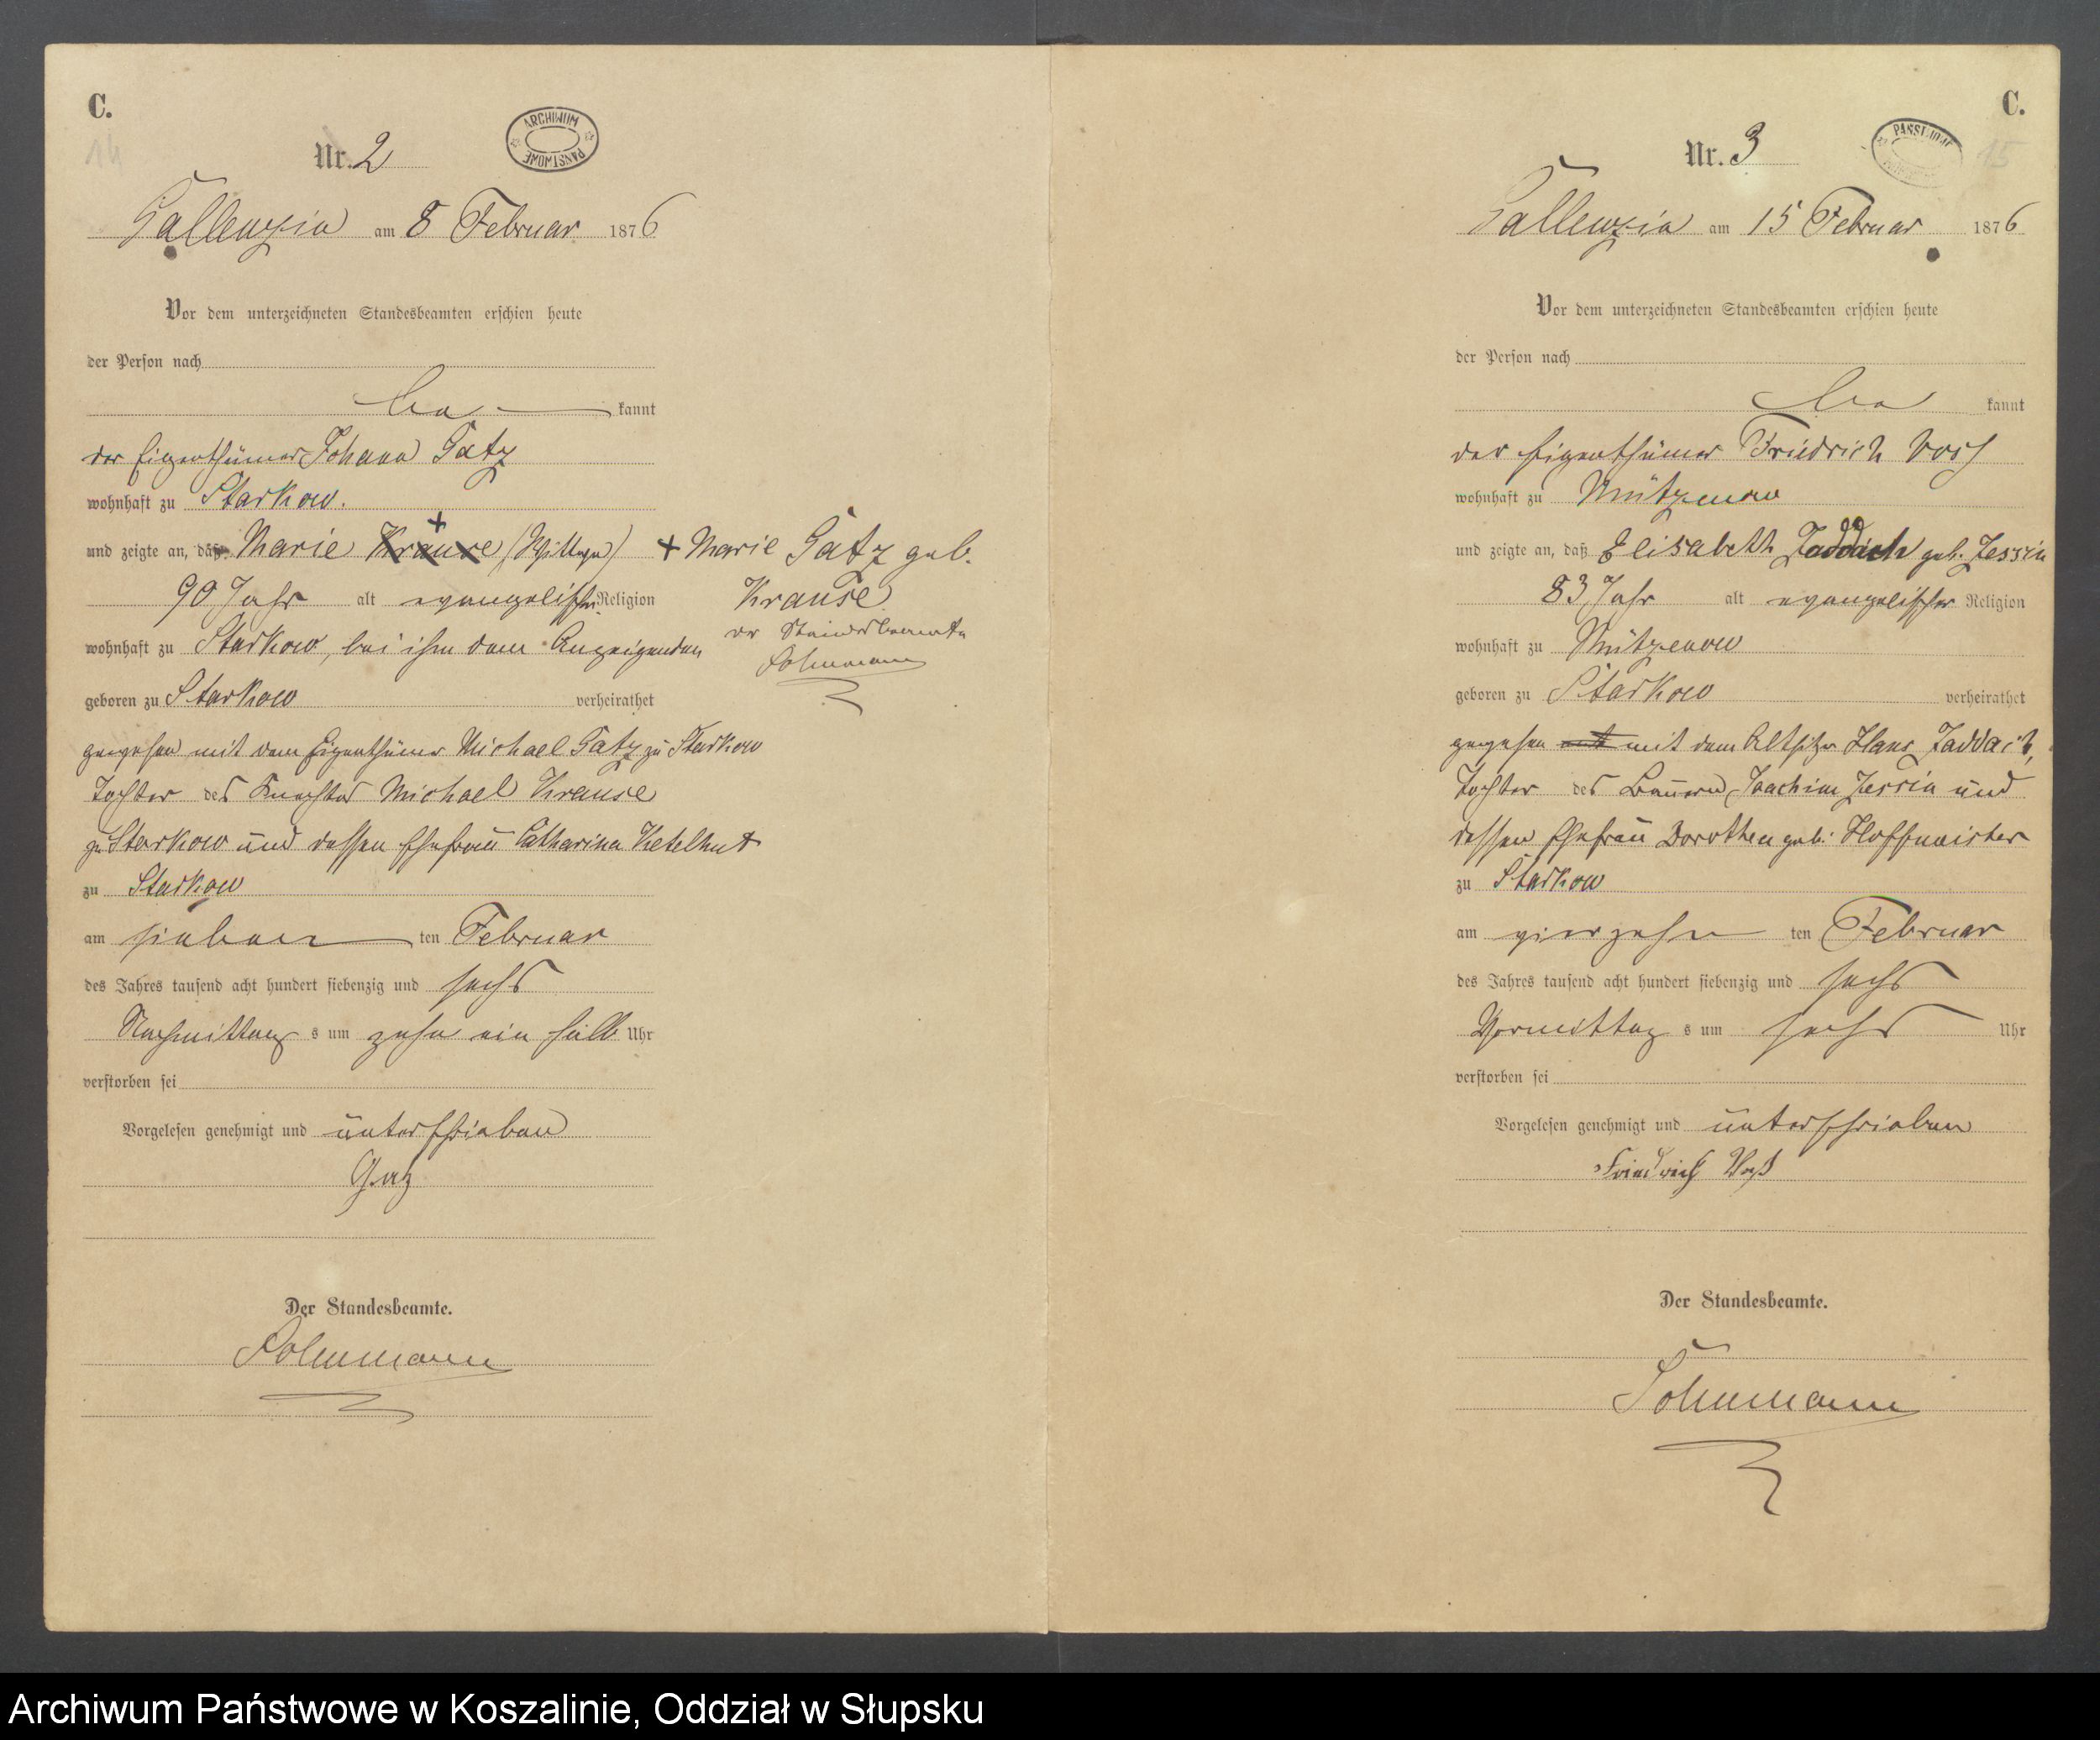 C.
14
Nr. 2
ARCHIWUM PAŃSTWOWE
Gallenzin am 8 Februar 1876
Vor dem unterzeichneten Standesbeamten erschien heute
der Person nach
be kannt
der Eigenthümer Johann Gatz
wohnhaft zu Starkow.
und zeigte an, daß Marie Krause
90 Jahr alt evangelischer Religion
wohnhaft zu Starkow, bei ihm dem Anzeigenden
geboren zu Starkow verheirathet
gewesen mit dem Eigenthümer Michael Gatz zu Starkow
Tochter des Knechtes Michael Krause
zu Starkow und dessen Ehefrau Catharina Ketelhut
zu Starkow
am sieben ten Februar
des Jahres tausend acht hundert siebenzig und sechs
Nachmittag s um zehn ein halb Uhr
verstorben sei
Vorgelesen genehmigt und unterschrieben
Gatz
Der Standesbeamte.
+ Marie Gatz geb.
Krause
der Standesbeamte
C.
15
Nr. 3
PAŃSTWOWE
Gallenzin am 15 Februar 1876
Vor dem unterzeichneten Standesbeamten erschien heute
der Person nach
be kannt
der Eigenthümer Friedrich Voss
wohnhaft zu Mützenow
und zeigte an, daß Elisabeth Zaddach geb. Zessin
83 Jahr alt evangelischer Religion
wohnhaft zu Mützenow
geboren zu Starkow verheirathet
gewesen mit dem Altsitzer Hans Zaddach,
Tochter des Bauern Joachim Zessin und
dessen Ehefrau Dorothea geb. Hoffmeister
zu Starkow
am vierzehn ten Februar
des Jahres tausend acht hundert siebenzig und sechs
Vormittag s um sechs Uhr
verstorben sei
Vorgelesen genehmigt und unterschrieben
Friedrich Voß
Der Standesbeamte.
Archiwum Państwowe w Koszalinie, Oddział w Słupsku